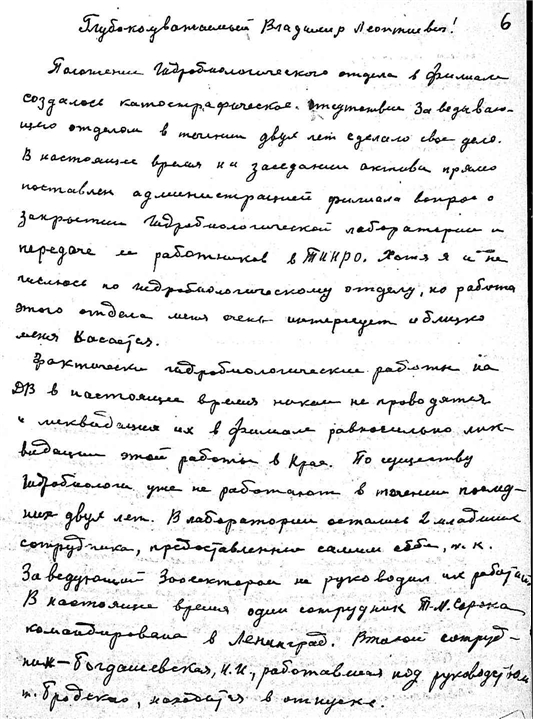 6
Глубокоуважаемый Владимир Леонтиевич!
Положение Гидробиологического отдела в филиале
создалось катострафическое. Отсутствие Заведываю-
щего отделом в течении двух лет сделало свое дело.
В настоящее время на заседании актива прямо
поставлен администрацией филиала вопрос о
закрытии Гидробиологической лаборатории и
передаче ее работников в ТИНРО. Хотя я и не
числюсь по гидробиологическому отделу, но работа
этого отдела меня очень интересует и близко
меня касается.
Фактически гидробиологические работы на
ДВ в настоящее время никем не проводятся
и ликвидация их в филиале равносильно лик-
видации этой работы в Крае. По существу
Гидробиологи уже не работают в течении послед-
них двух лет. В лаборатории остались 2 младших
сотрудника, предоставленные самим себе, т.к.
Заведующий Зоосектором не руководил их работой.
В настоящее время один сотрудник Т.М. Сорока
командирована в Ленинград. Второй сотруд-
ник – Богдашевская, Н.И., работавшая под руководством
т. Бродского, находится в отпуске.